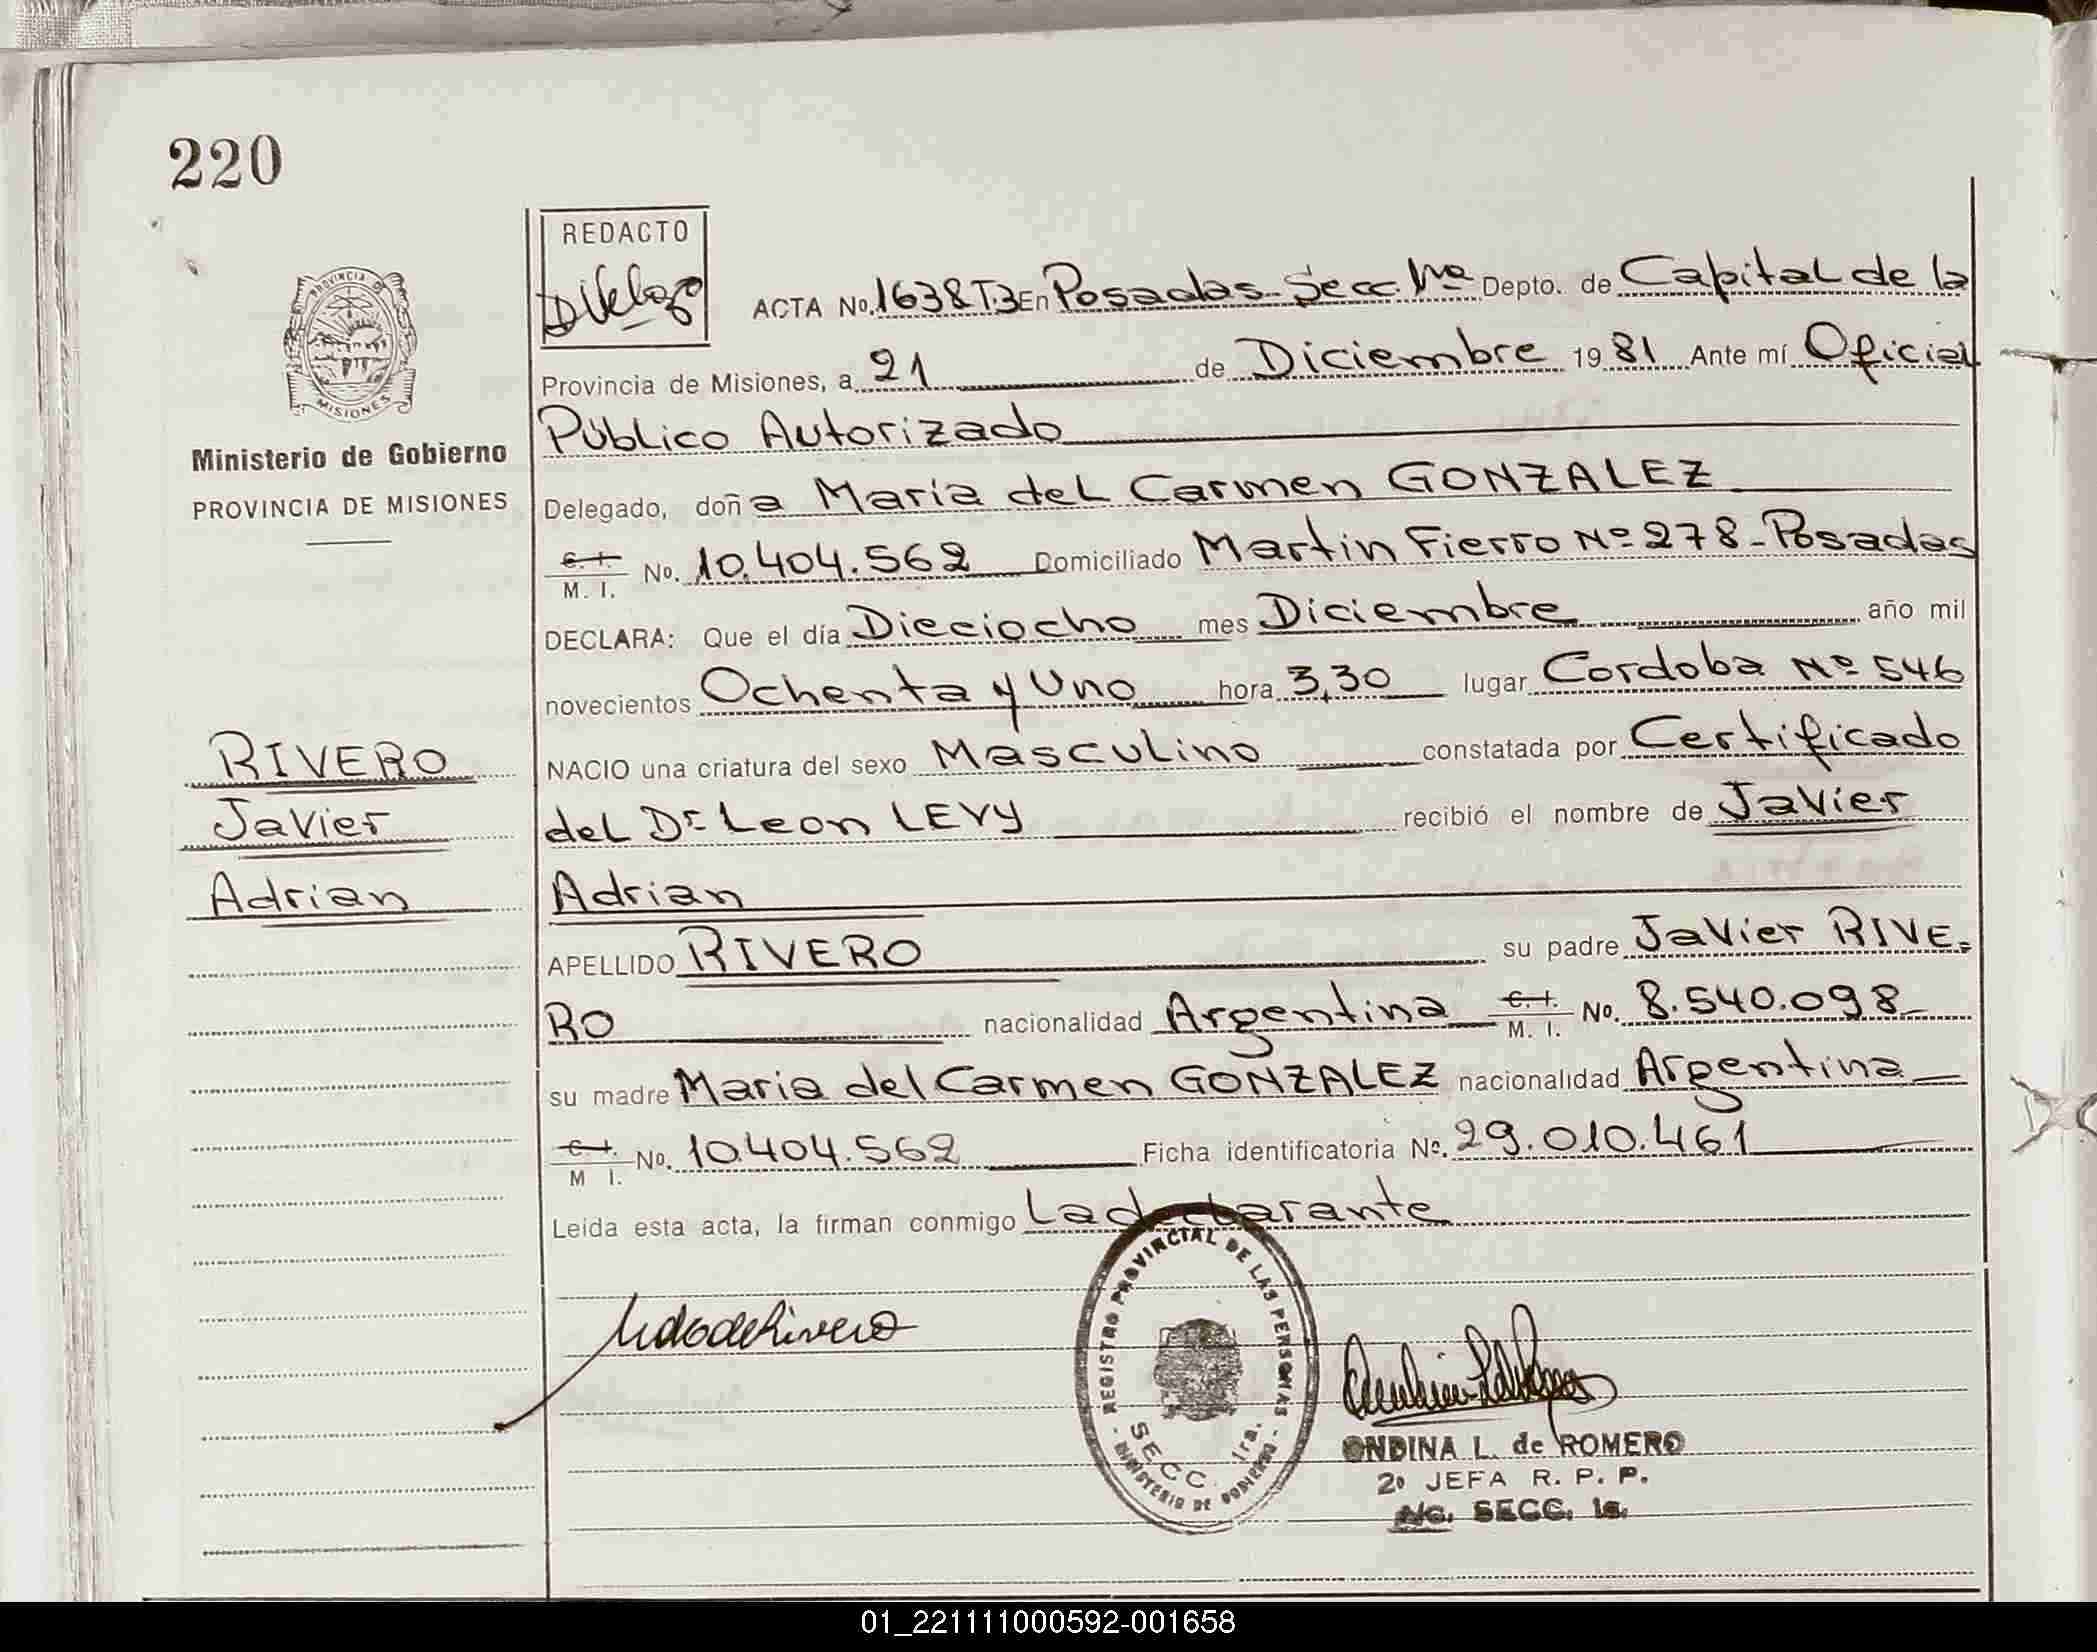 220
REDACTO
PROVINCIA
MISIONES
Ministerio de Gobierno
PROVINCIA DE MISIONES
ACTA No. 1638 T.3 En Posadas - Secc. 1ra Depto. de Capital de la
Provincia de Misiones, a 21 de Diciembre 1981 Ante mí Oficial
Público Autorizado
Delegado, doña María del Carmen GONZALEZ
C. I.
M. I. No. 10.404.562 Domiciliado Martin Fierro Nº 278 - Posadas
DECLARA: Que el día Dieciocho mes Diciembre año mil
novecientos Ochenta y Uno hora 3,30 lugar Cordoba Nº 546
NACIO una criatura del sexo Masculino constatada por Certificado
del Dr. Leon LEVY recibió el nombre de Javier
Adrian
APELLIDO RIVERO su padre Javier RIVE=
RO nacionalidad Argentina C. I. M. I. No. 8.540.098
su madre Maria del Carmen GONZALEZ nacionalidad Argentina
C. I.
M I. No. 10.404.562 Ficha identificatoria No. 29.010.461
Leida esta acta, la firman conmigo La declarante
RIVERO
Javier
Adrian
de Rivero
- REGISTRO PROVINCIAL DE LAS PERSONAS -
MINISTERIO DE GOBIERNO
SECC. 1ra.
ONDINA L. de ROMERO
2º JEFA R. P. P.
SECC. 1a.
01_221111000592-001658